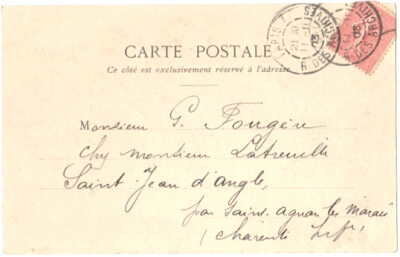 CARTE POSTALE
Ce côté est exclusivement réservé à l'adresse.
PARIS
R. DES ARCHIVES
Monsieur G. Fougère
chez monsieur Latreuille
Saint Jean d'angle,
par Saint-agnan les Marais
(Charente Infre)